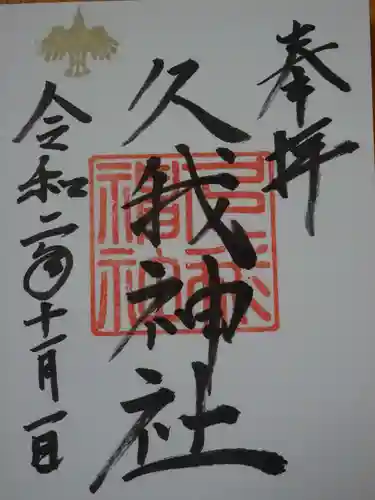 奉拝
久我神社
久我神社
令和二年十一月一日